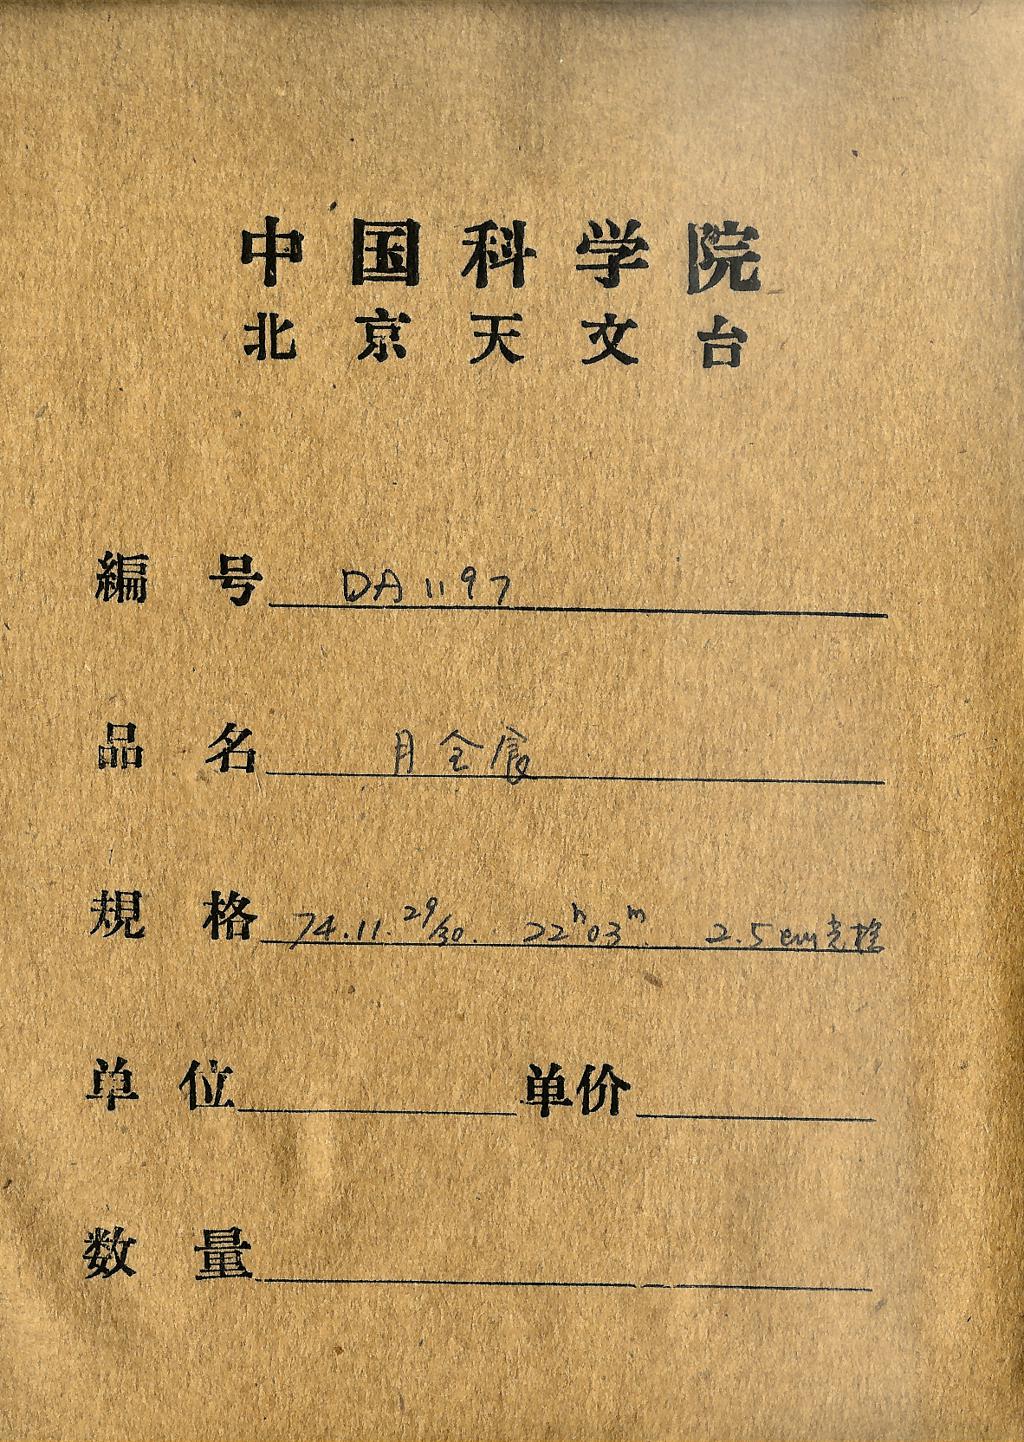 中国科学院
北京天文台
編号 DA1197
品名 月全食
規格 74.11.29/30. 22h03m. 2.5cm
单位 单价
数量